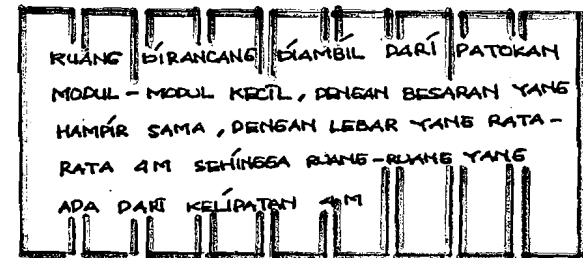 RUANG DIRANCANG DIAMBIL DARI PATOKAN
MODUL - MODUL KECIL, DENGAN BESARAN YANG
HAMPIR SAMA, DENGAN LEBAR YANG RATA-
RATA 4M SEHINGGA RUANG-RUANG YANG
ADA DARI KELIPATAN 4M